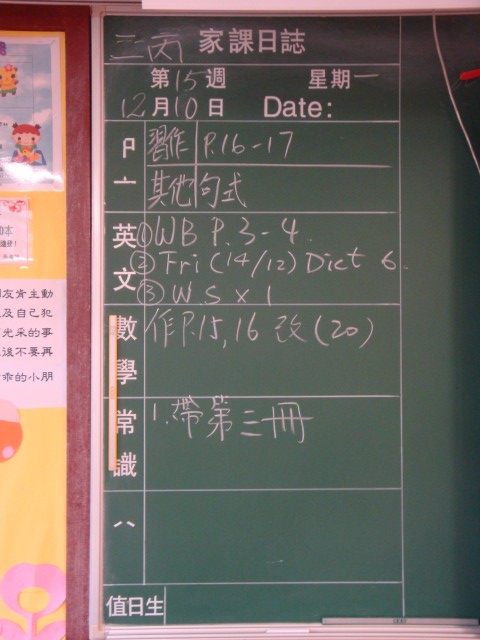 三丙 家課日誌
第15週 星期一
12月10日 Date:
習作 P.16-17
其他句式
英文
①WB P.3-4.
②Fri (14/12) Dict 6.
③W.S x 1
數學
作P.15,16 改(20)
常識
1.帶第三冊
值日生
友肯主動
及自己犯
光采的事
後不要再
乖的小朋